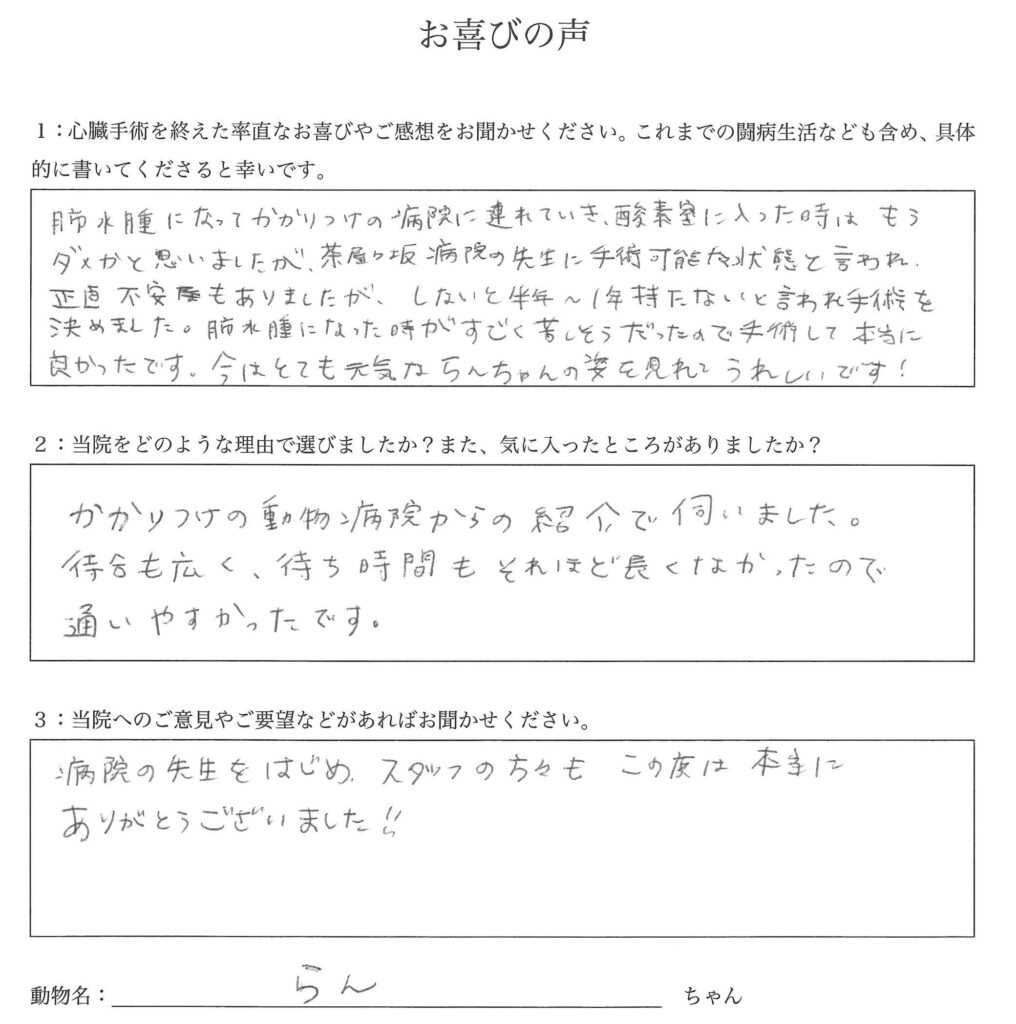 お喜びの声
１：心臓手術を終えた率直なお喜びやご感想をお聞かせください。これまでの闘病生活なども含め、具体
的に書いてくださると幸いです。
肺水腫になってかかりつけの病院に連れていき、酸素室に入った時は もう
ダメかと思いましたが、茶屋ヶ坂病院の先生に手術可能な状態と言われ、
正直 不安もありましたが、しないと半年～1年持たないと言われ手術を
決めました。肺水腫になった時がすごく苦しそうだったので手術して本当に
良かったです。今はとても元気ならんちゃんの姿を見れてうれしいです！
２：当院をどのような理由で選びましたか？また、気に入ったところがありましたか？
かかりつけの動物病院からの紹介で伺いました。
待合も広く、待ち時間もそれほど長くなかったので
通いやすかったです。
３：当院へのご意見やご要望などがあればお聞かせください。
病院の先生をはじめ、スタッフの方々も この度は 本当に
ありがとうございました!!
動物名：らん ちゃん